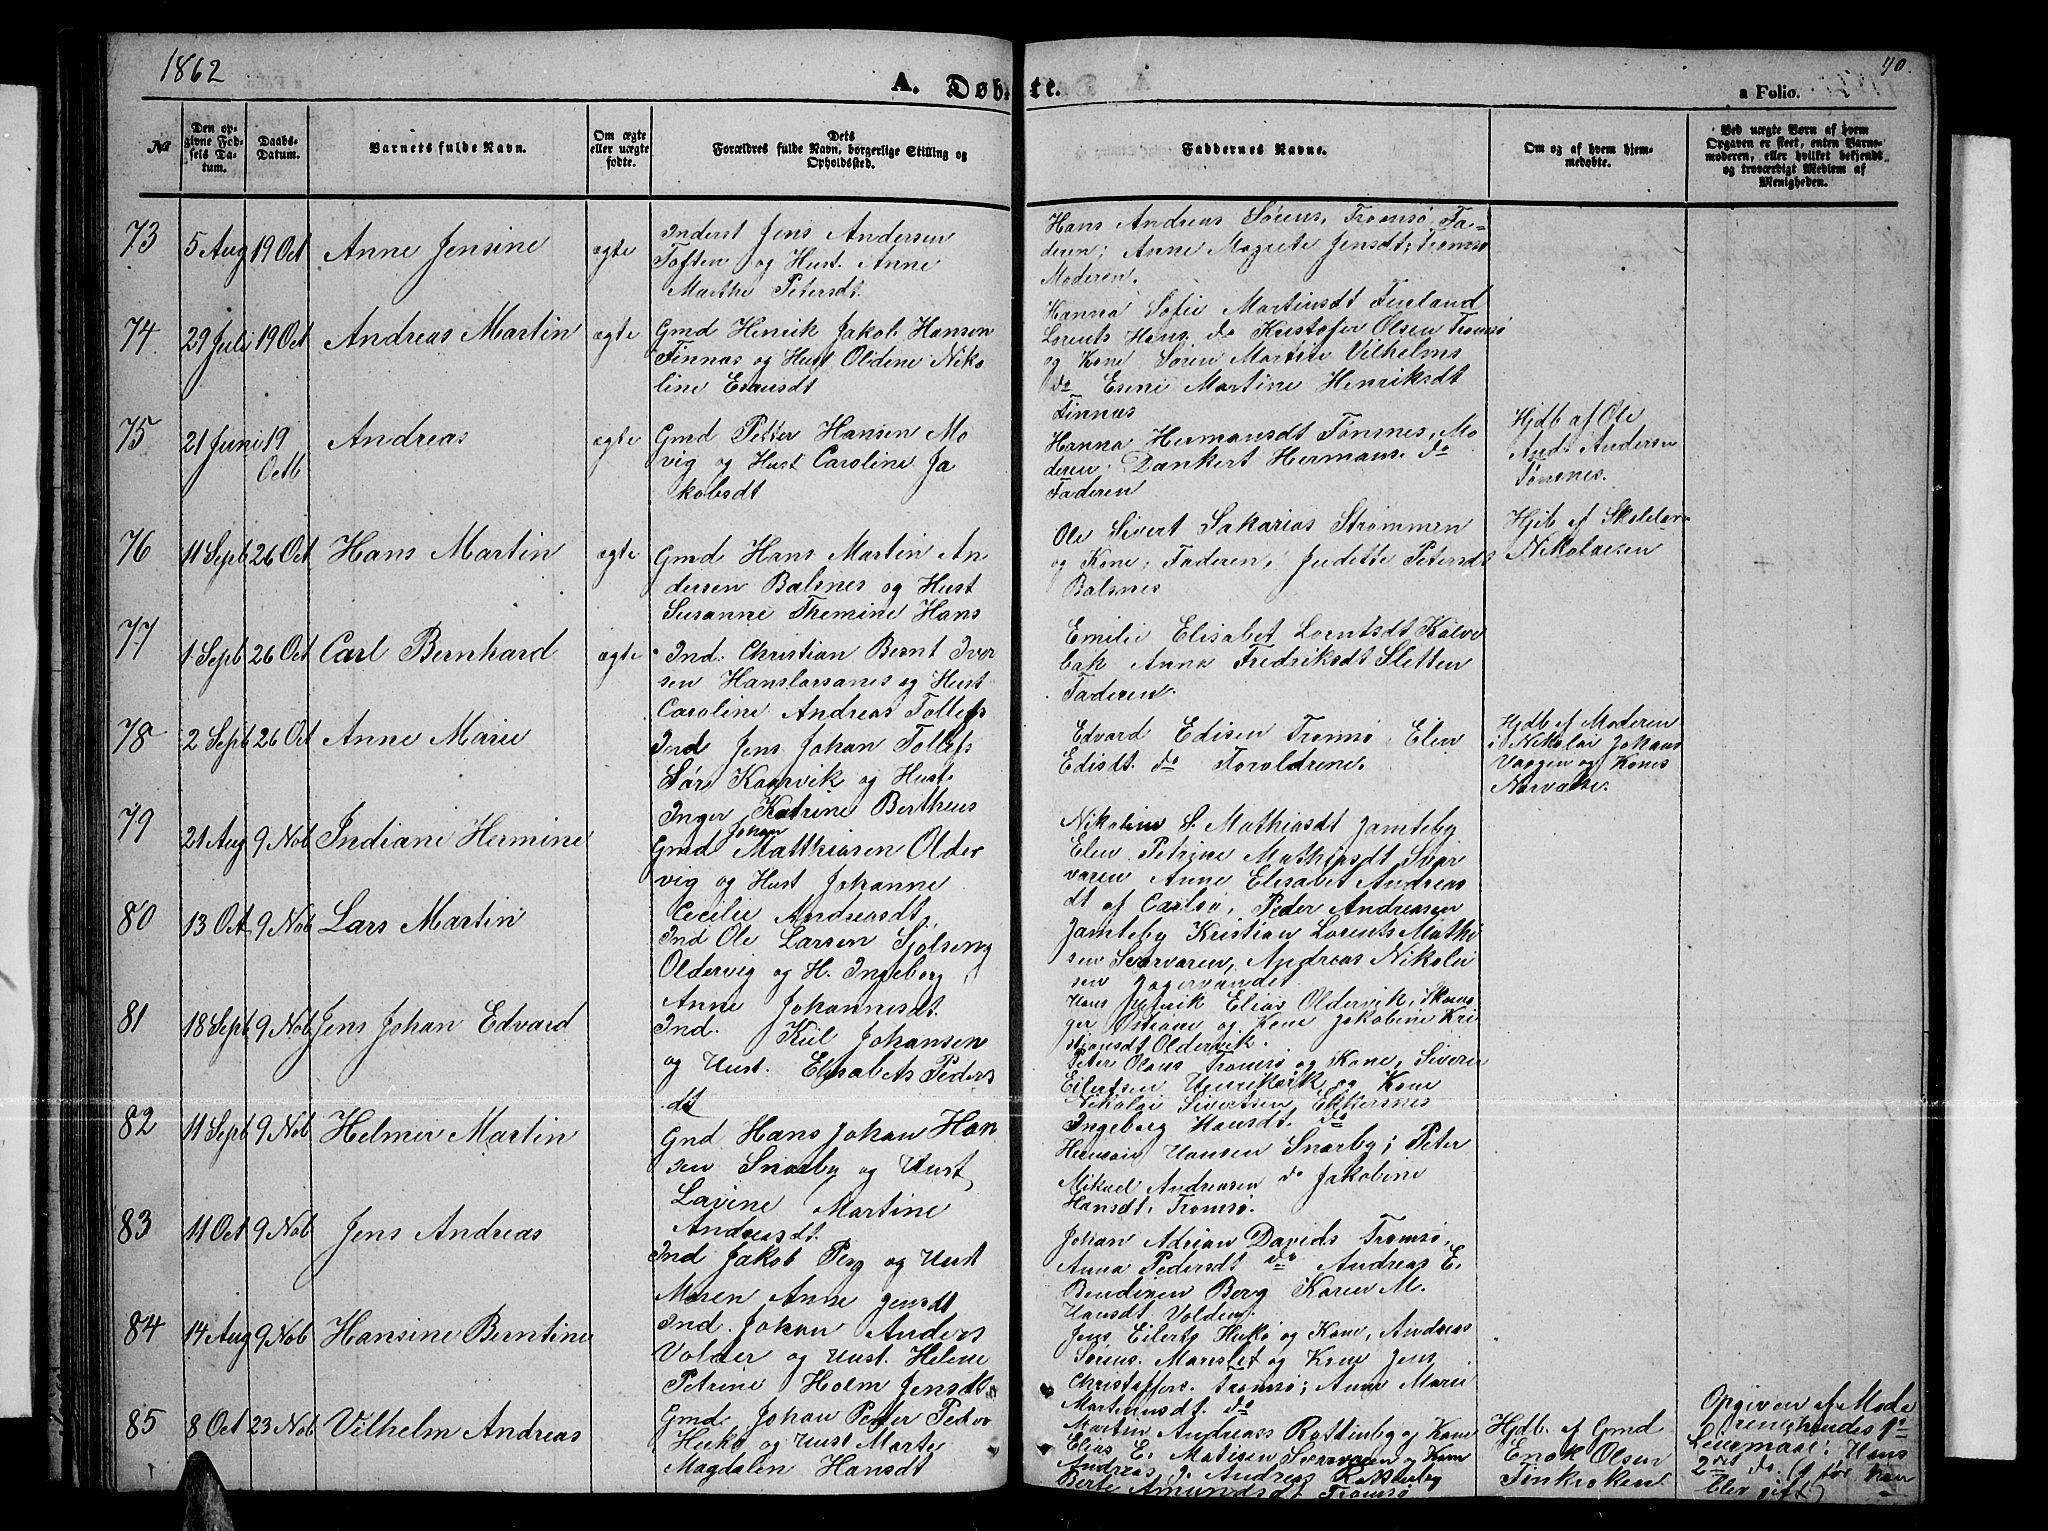 1862
A. Døbte.
70.
a Folio.
No
Den opgivne Fødsels Datum.
Daabs-Datum.
Barnets fulde Navn.
Om ægte eller uægte fødte.
Dets Forældres fulde Navn, borgerlige Stilling og Opholdssted.
Faddernes Navne.
Om og af hvem hjemmedøbte.
Ved uægte Børn af hvem Opgaven er skeet, enten Barnemoderen, eller hvilket bekjendt og troværdigt Medlem af Menigheden.
73
5 Aug
19 Oct
Anne Jensine
ægte
Inderst Jens Andersen
Toften og Hust. Anne
Marthe Petersdt.
Hans Andreas Sørens, Tromsø, Fa-
deren; Anne Magrete Jensdt; Tromsø
Moderen.
74
29 Juli
19 Oct
Andreas Martin
ægte
Gmd Henrik Jakob Hansen
Finnæs og Hust Oldine Niko
line Evansdt
Hanna Sofie Martinsdt Finland
Lorents Hans. do Kristofer Olsen Tromsø
og Kone Søren Martin Vilhelms
do Martine Henriksdt
Finnæs
75
21 Juni
19
Octb
Andreas
ægte
Gmd Petter Hansen Mo
vig og Hust Caroline Ja
kobsdt
Hanna Hermansdt Tønsnes, Mo
deren, Dankert Hermans. do
Faderen
Hjdb af Ole
And. Andersen
Tønsnes.
76
11 Sept
26 Oct
Hans Martin
ægte
Gmd Hans Martin An
dersen Balsnes og Hust
Susanne Themine Hans
Ole Sivert Sakarias Strømmen
og Kone, Faderen, Judette Petersdt
Balsnes
Hjb af Skolelær
Nikolaisen
77
1 Sept
26 Oct
Carl Bernhard
ægte
Ind. Christian Bernt Iver
sen Hanslarsanes og Hust
Caroline Andreas Tollefs
Emilie Elisabet Lorntsdt Kalve
bak Anna Fredriksdt Sletten
Faderen.
78
2 Sept
26 Oct
Anne Marie
Ind Jens Johan Tollefs
Sør Kaarvik og Hust.
Inger Katrine Bertheus
Edvard Edisen Tromsø, Elen
Edisdt. do Foroldrene.
Hjdb af Moderen
i Nikolai Johans
Vaagen og Kones
Nærvalse.
79
21 Aug
9 Nob
Indiane Hermine
Johan
Gmd Matthiasen Older
vig og Hust Johanne
Cecilie Andreasdt.
Nikoline S. Mathiasdt Jamteby
Elen Petrine Mathiasdt Svar
varen Anne Elisabet Andreas
dt af Carlsø, Peder Andreasen
80
13 Oct
9 Nob
Lars Martin
Ind Ole Larsen Sjølseng
Oldervig og H. Ingeborg
Anne Johannesdt.
Jamteby Kristian Lorents Mathi
sen Svarvaren, Andreas Nikolai
sen Jægervandet
81
18 Sept
9 Nob
Jens Johan Edvard
Ind. Kiil Johansen
og Hust. Elisabets Peders
dt
Hans Henrik Elias Oldervik, Skoma
ger Ostrom og Kone Jakobine Kri
stiansdt Oldervik.
Peter Olaus Tromsø og Kone, Siveren
Eilertsen og Kone
82
11 Sept
9 Nob
Helmer Martin
Gmd Hans Johan Han
sen Snarby og Hust
Lavine Martine
Andreasdt.
Nikolai Sivertsen Ekkersnes
Ingeborg Hansdt. do
Hermain Hansen Snarby; Peter
Mikael Andreasen do Jakobine
Hansdt, Tromsø.
83
11 Oct
9 Nob
Jens Andreas
Ind Jakob Perg og Hust
Maren Anne Jensdt
Johan Adrian Davids Tromsø,
Anna Pedersdt do Andreas E.
Bendixen Berg Karen M.
Hansdt Volden.
84
14 Aug
9 Nob
Hansine Berntine
Ind. Johan Anders
Volder og Hust. Helene
Petrine Holm Jensdt
Jens Eilerts Hukø og Kone, Andreas
Sørens. Mareslet og Kone Jens
Christoffers. Tromsø; Anne Marie
Martinusdt. do
85
8 Oct
23 Nob
Vilhelm Andreas
Gmd. Johan Peder Peder
Hukø og Hust Marte
Magdalen Hansdt
Morten Andreass Rottenby og Kone
Elias E. Matisen Svarvaren og Kone
Andreas J. Andreas Rottenby
Berte Amundsdt Tromsø
Hjdb. af Gmd
Enok Olsen
Finkroken
Opgiven af Mode
ren;
2det do. (før han
blev gift)